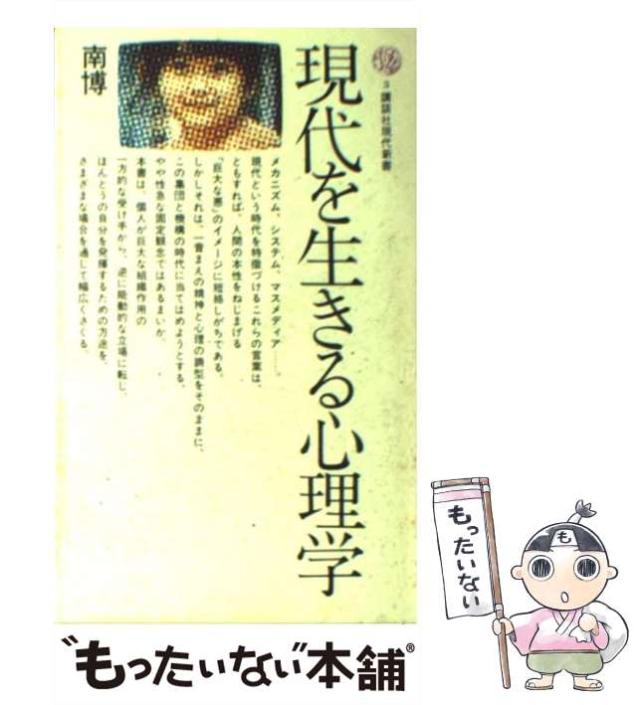 3 講談社現代新書
現代を生きる心理学
南博
メカニズム、システム、マスメディア……。
現代という時代を特徴づけるこれらの言葉は、
ともすれば、人間の本性をねじまげる
「巨大な悪」のイメージに短絡しがちである。
しかしそれは、一昔まえの精神と心理の調型をそのままに、
この集団と機構の時代に当てはめようとする、
やや性急な固定観念ではあるまいか。
本書は、個人が巨大な組織作用の
一方的な受け手から、逆に能動的な立場に転じ、
ほんとうの自分を発揮するための方途を、
さまざまな場合を通して幅広くさぐる。
もったいない
も
“もったいない”本舗®